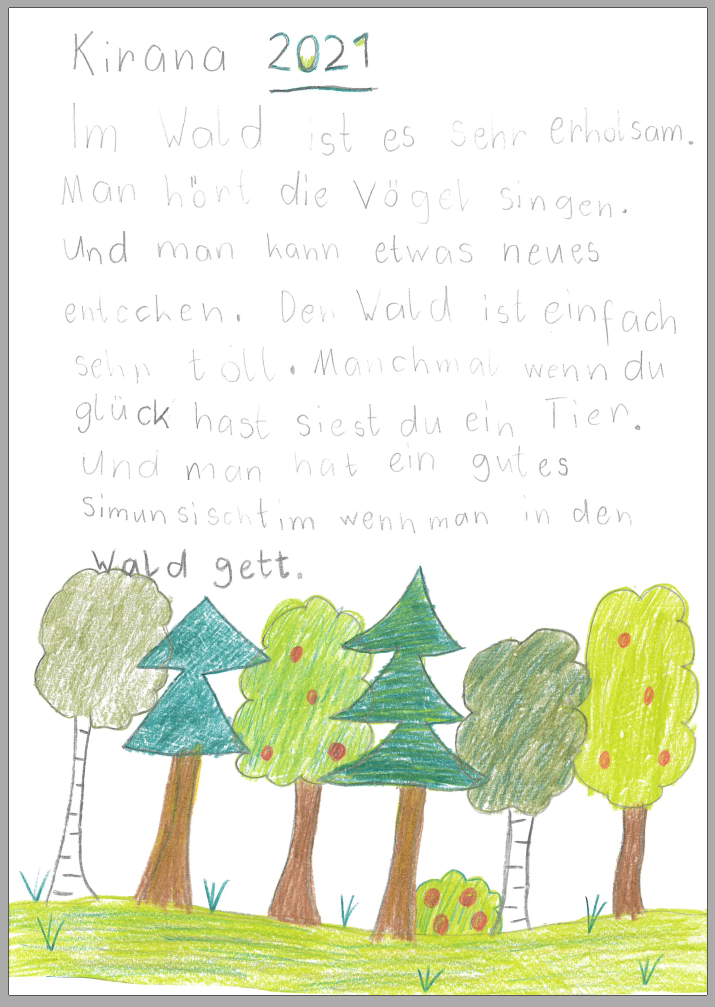 Kirana 2021
Im Wald ist es sehr erholsam.
Man hört die Vögel singen.
Und man kann etwas neues
entcchen. Der Wald ist einfach
sehr toll. Manchmal wenn du
glück hast siest du ein Tier.
Und man hat ein gutes
simunsischtim wenn man in den
Wald gett.